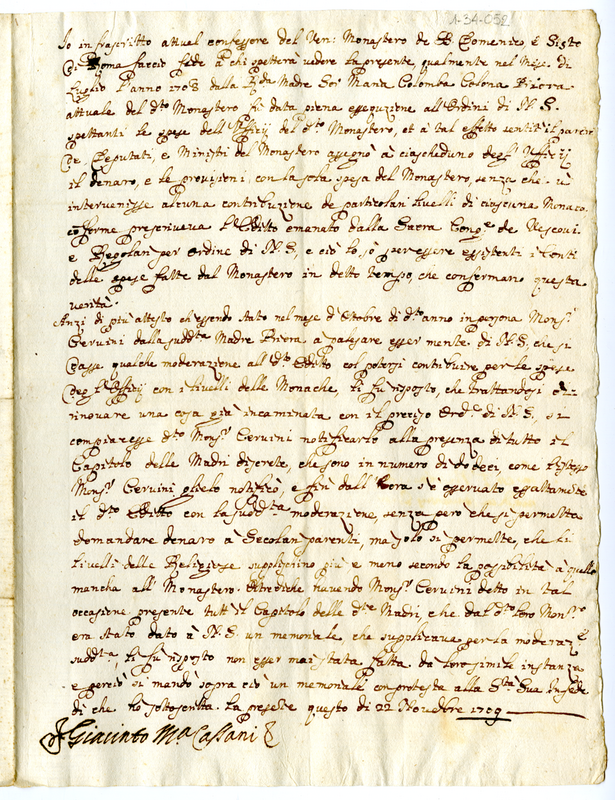 1-34-052
Io infrascritto attual confessore del Ven: Monastero de SS. Domenico, e Sisto
di Roma faccio fede à chi spetterà vedere la presente, qualmente nel mese di
Luglio l'anno 1708 dalla Rda Madre Sor Maria Colomba Colona Priora
attuale del dto Monastero fù data piena essequzione all'Ordini di N. S.
spettanti le spese dell'Uffitij del dto Monastero, et à tal effetto sentiti il parere
de Deputati, e Ministri del Monastero assegnò à ciascheduno degl'Uffitij
il denaro, e le provisioni, con la sola spesa del Monastero, senza che vi
intervenisse alcuna contribuzione de particolari livelli di ciascuna Monaca
conforme prescriveva l'Editto emanato dalla Sacra Conge de Vescovi
e Regolari per ordine di N. S, e ciò lo sò per essere essistenti i Conti
delle spese fatte dal Monastero in detto tempo, che confermano questa
verità.
Anzi di più attesto ch'essendo stato nel mese d'Ottobre di dto anno in persona Monsr
Cervini dalla suddta Madre Priora a palesare esser mente di N. S, che si
dasse qualche moderazione all'dto Editto col potersi contribuire per le spese
degl'Uffitij con i livelli delle Monache, li fù risposto, che trattandosi di
rinovare una cosa già incaminata con il preciso Orde di N. S, si
compiacesse dto Monsr Cervini notificarlo alla presenza di tutto il
Capitolo delle Madri discrete, che sono in numero di dodeci, come l'istesso
Monsr Cervini glielo notificò, e fin dall'hora s'è osservato essattamente
il dto Editto con la suddta moderazione, senza però che si permetta
domandare denaro a Secolari parenti, ma solo si permette, che li
livelli delle Religiose supplischino più e meno secondo la possibilità a quello
mancha all'Monastero. Oltre di che havendo Monsr Cervini detto in tal
occasione presente tutt'il Capitolo delle dte Madri, che dal dto loro Monro
era stato dato à N. S. un memoriale che supplicava per la moderazne
suddta, li fù risposto non esser mai stata fatta da loro simile instanza
e perciò si mandò sopra ciò un memoriale con protesta alla Sta Sua In fede
di che ho sottoscritta la presente questo di 22 Novembre 1709
fr Giacinto Ma Cassani